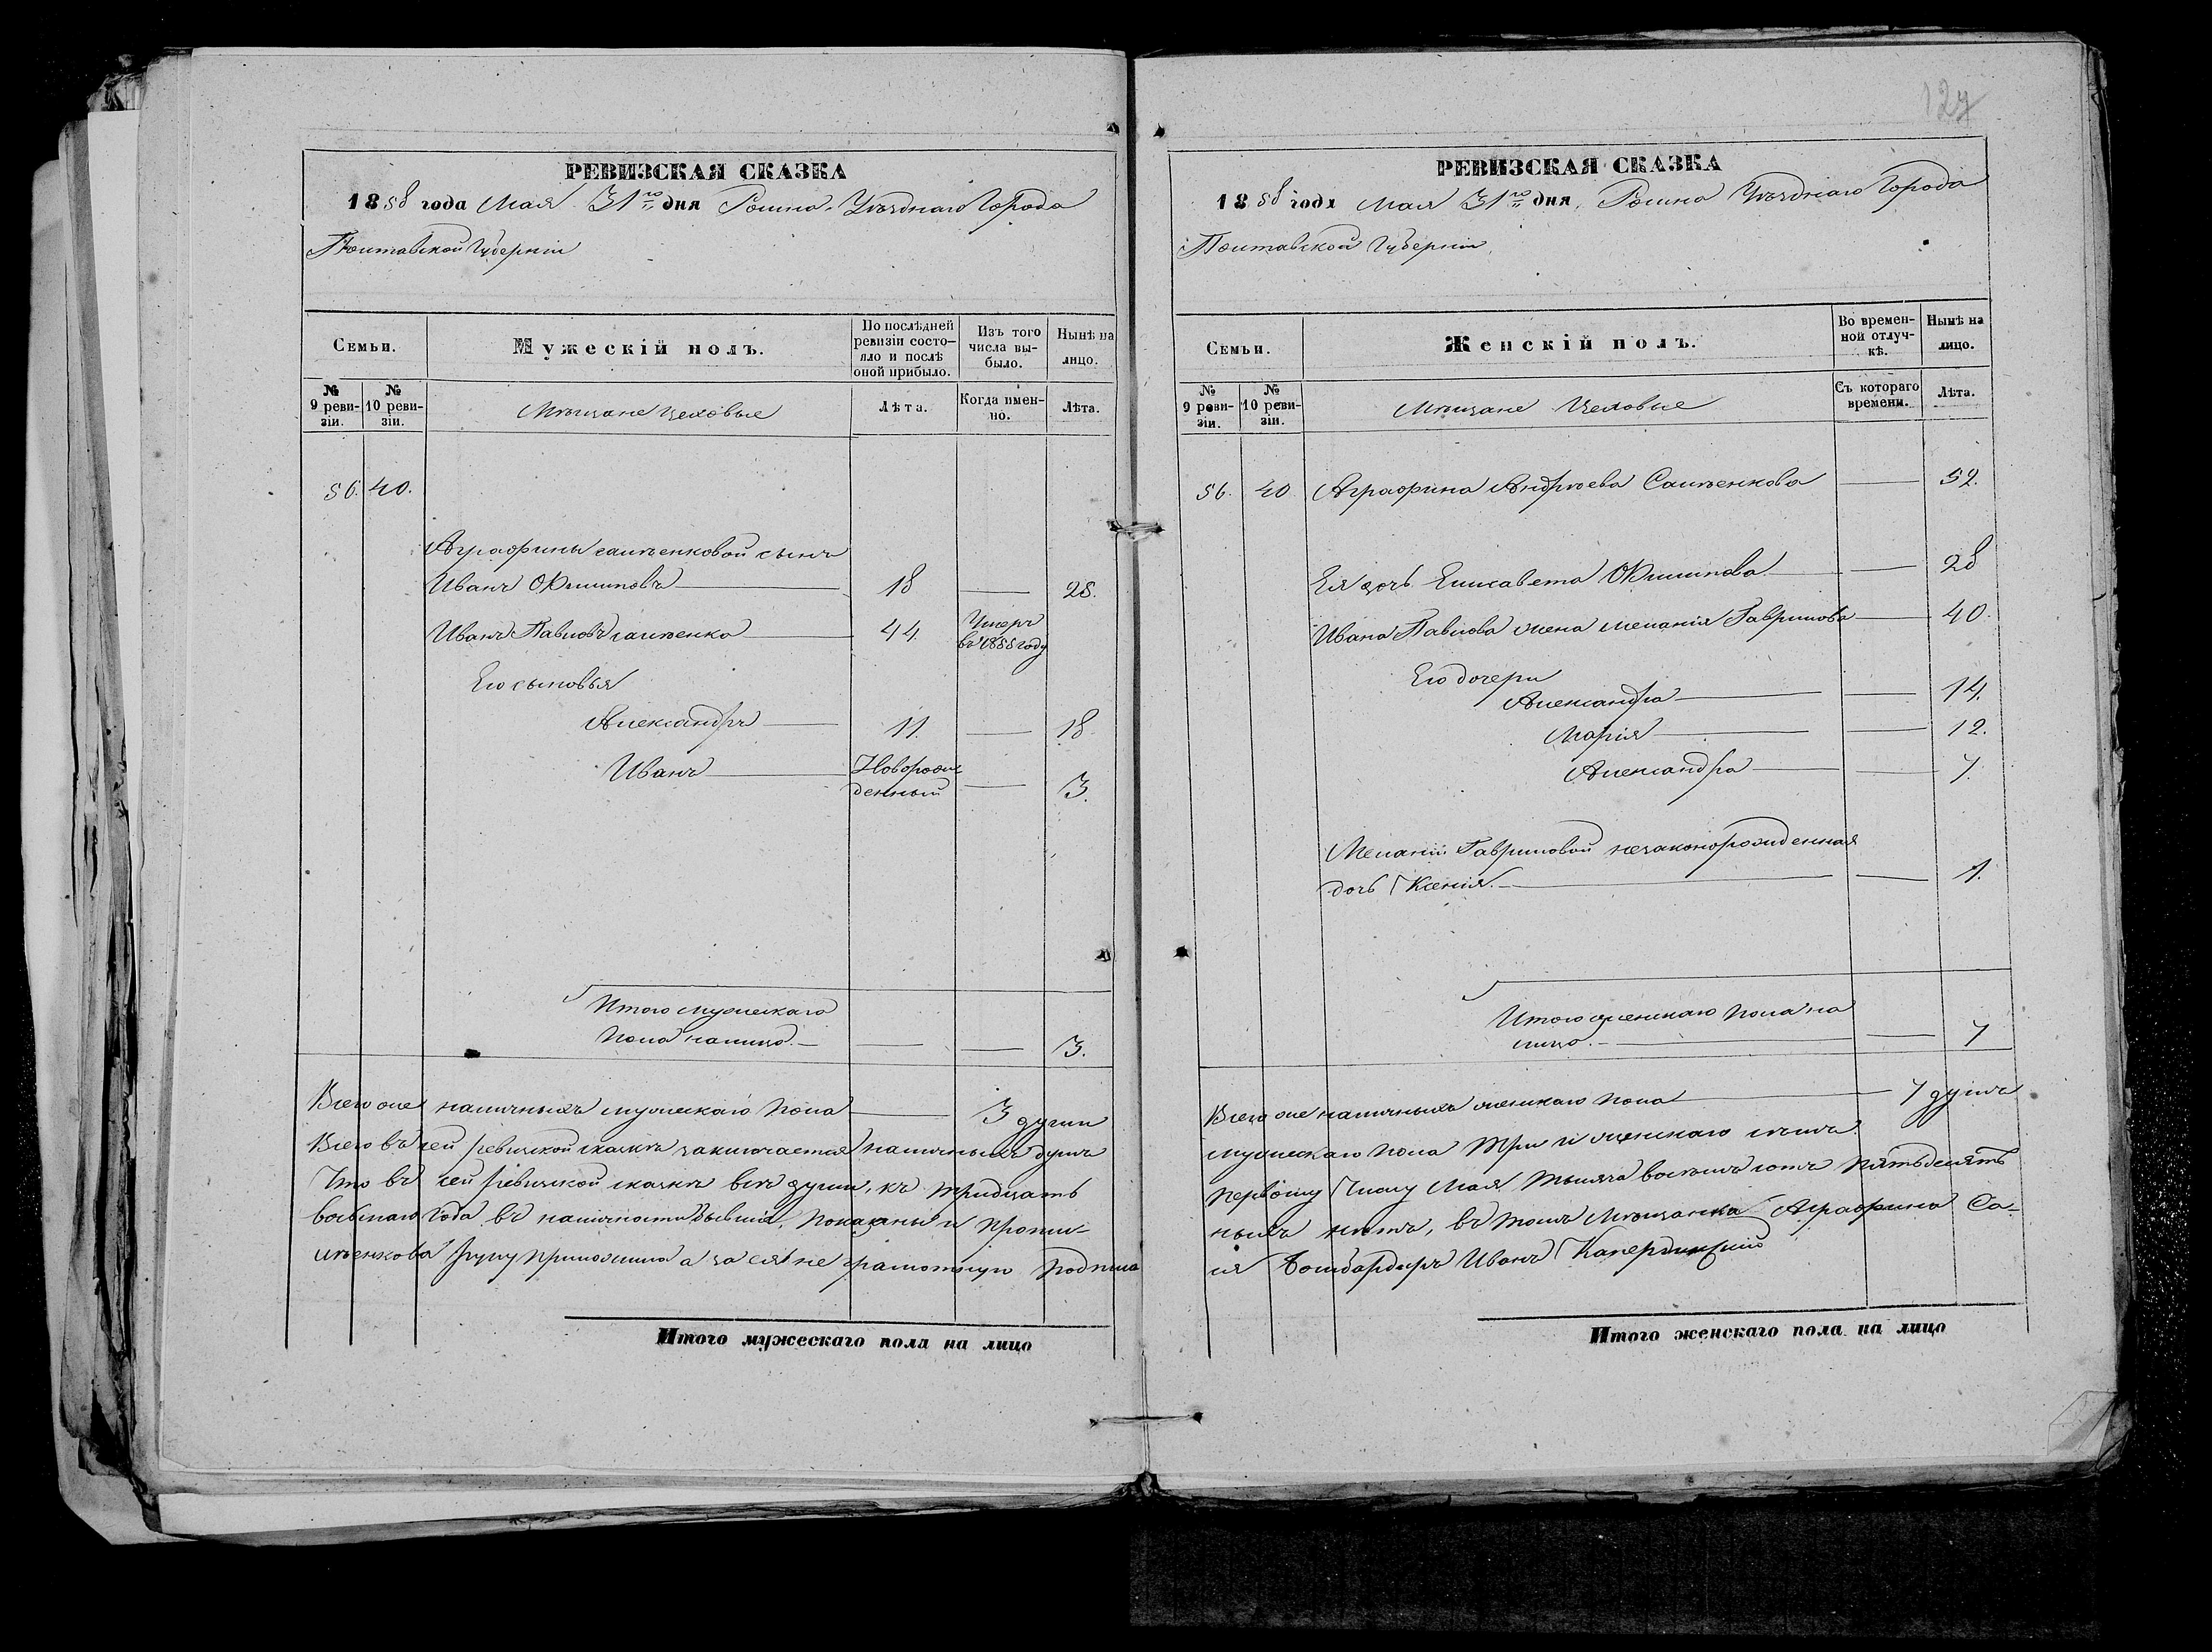 РЕВИЗСКАЯ СКАЗКА
1858 года Мая 31го дня Ромна Уѣзднаго Города
Полтавской Губерніи
Семьи.
Мужескій полъ.
По послѣдней ревизіи состояло и послѣ оной прибыло.
Изъ того числа выбыло.
Нынѣ на лицо.
№ 9 ревизіи.
№ 10 ревизіи.
Мѣщане цеховые
Лѣта.
Когда именно.
Лѣта.
56. 40.
Аграфины Самѣенковой сынъ
Иванъ Филиповъ — 18 — 28.
Иванъ Павловъ Самѣенко — 44 Умеръ
въ 1855 году
Его сыновья
Александръ — 11. — 18
Иванъ — Новорож
денный — 3.
Итого мужескаго
пола налицо. — — — 3.
Всего же наличныхъ мужескаго пола — 3 души
Всего въ сей ревизской сказкѣ заключается наличныхъ душъ
Что въ сей ревизской сказкѣ всѣ души, къ тридцать
восьмаго года въ наличности бывшія, показаны и пропи-
мѣенкова руку приложила а за нея не грамотную подписа
Итого мужескаго пола на лицо
127
РЕВИЗСКАЯ СКАЗКА
1858 года Мая 31го дня, Ромна Уѣзднаго Города
Полтавской Губерніи,
Семьи.
Женскій полъ.
Во временной отлучкѣ.
Нынѣ на лицо.
№ 9 ревизіи.
№ 10 ревизіи.
Мѣщане Цеховые
Съ котораго времени.
Лѣта.
56. 40 Аграфина Андрѣева Самѣенкова — 52.
Ея дочь Елисавета Филипова — 28
Ивана Павлова жена Меланія Гаврилова — 40
Его дочери
Александра — — 14.
Марія — — 12.
Александра — — 7.
Меланіи Гавриловой незаконорожденная
дочь Ксенія. — — 1.
Итого женскаго пола на
лицо. — — 7
Всего же наличныхъ женскаго пола — 7 душъ
мужескаго пола три и женскаго семь.
первому числу Мая тысяча восемь сотъ пятьдесятъ
ныхъ нѣтъ, въ томъ Мѣщанка Аграфина Са-
ся Бомбардиръ Иванъ
Итого женскаго пола на лицо